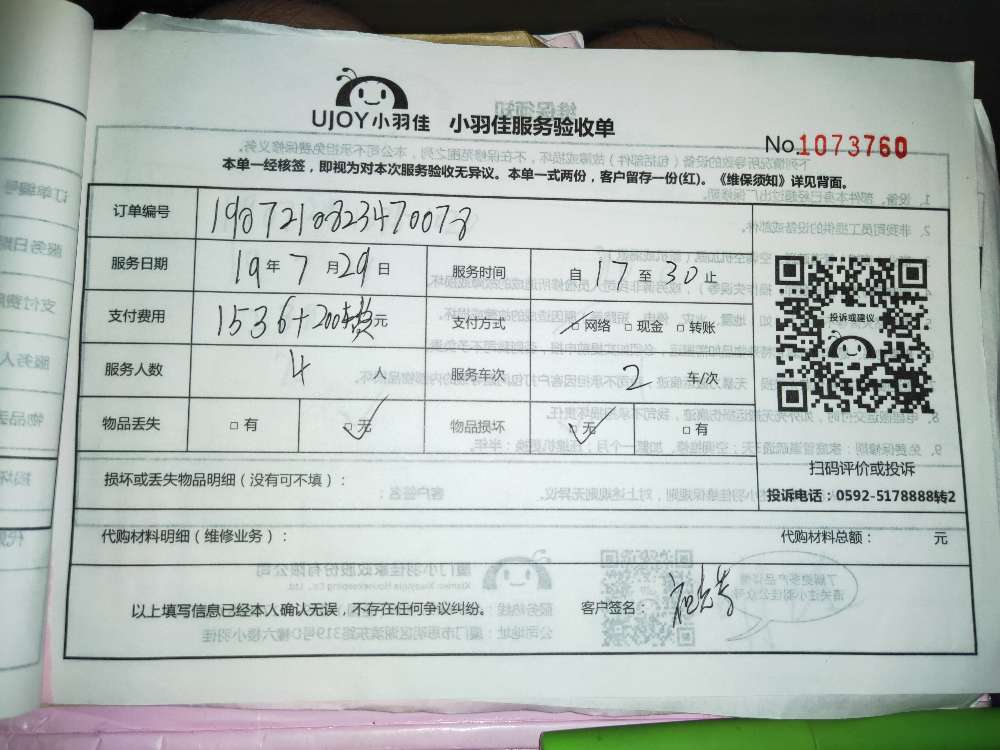 UJOY小羽佳 小羽佳服务验收单
No.1073760
本单一经核签，即视为对本次服务验收无异议。本单一式两份，客户留存一份(红)。《维保须知》详见背面。
订单编号 1907210823470078
服务日期 19年7月29日 服务时间 自17至30止
支付费用 1536+200 元 支付方式 ☑网络 □现金 □转账
服务人数 4人 服务车次 2 车/次
物品丢失 □有 ☑无 物品损坏 ☑无 □有
投诉或建议
扫码评价或投诉
投诉电话：0592-5178888转2
损坏或丢失物品明细（没有可不填）：
代购材料明细（维修业务）： 代购材料总额： 元
以上填写信息已经本人确认无误，不存在任何争议纠纷。 客户签名：